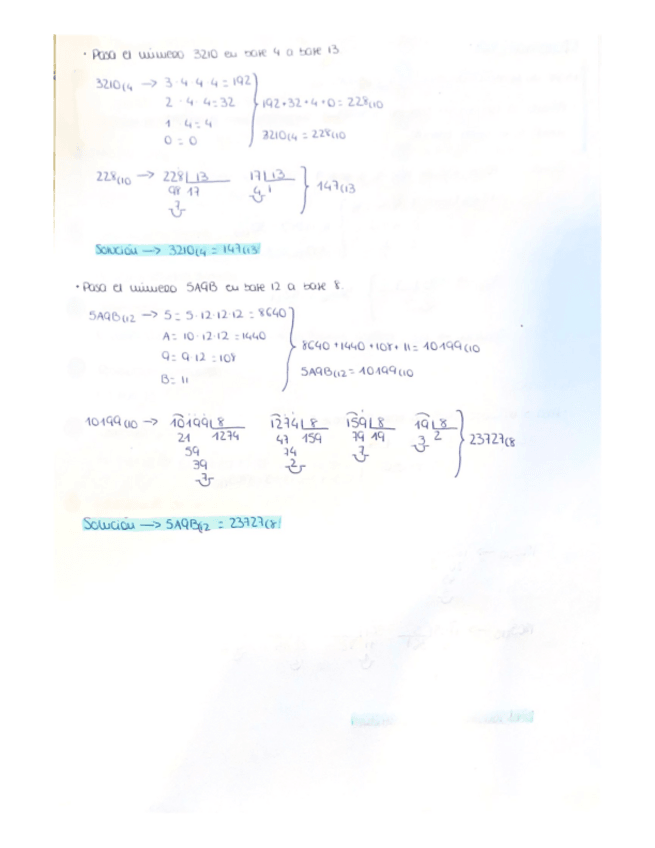 · Pasa el número 3210 en base 4 a base 13
3210(4 → 3·4·4·4=192
2·4·4=32
1·4=4
0=0
192+32+4+0=228(10
3210(4 = 228(10
228(10 → 228 13 17 13
98 17 4 1
7
147(13
Solución → 3210(4 = 147(13
· Pasa el número 5A9B en base 12 a base 8.
5A9B(12 → 5= 5·12·12·12 = 8640
A= 10·12·12 =1440
9= 9·12 =108
B= 11
8640+1440+108+11=10199(10
5A9B(12=10199(10
10199(10 → 10199 8 1274 8 159 8 19 8
21 1274 47 159 79 19 3 2
59 74 7
39 2
7
23727(8
Solución → 5A9B(12 = 23727(8